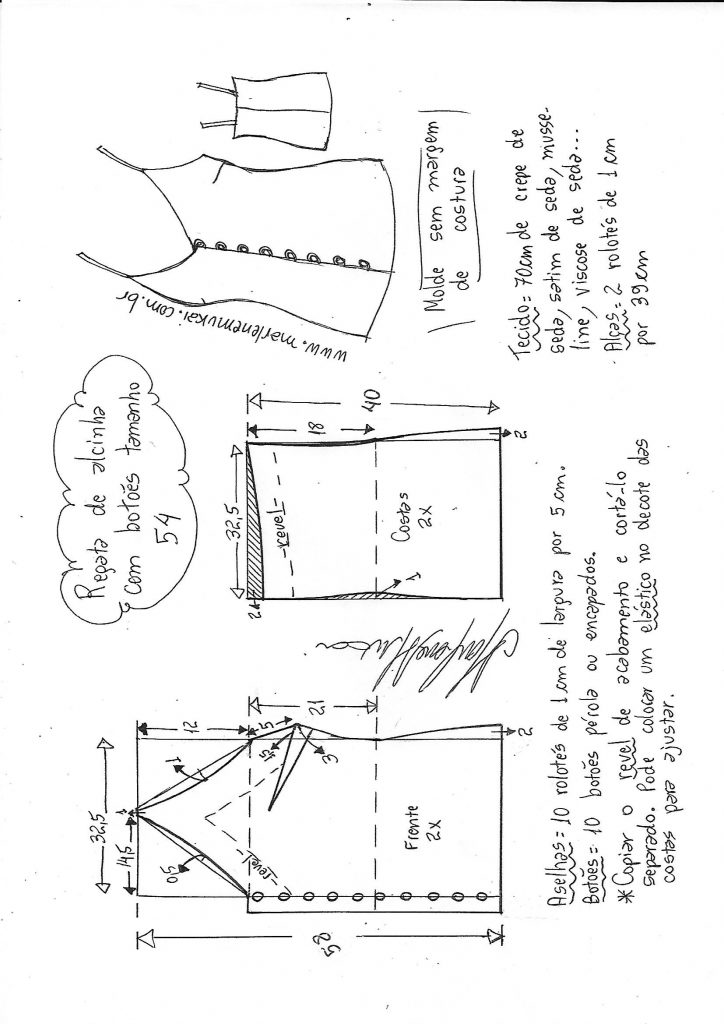 Regata de alcinha
com botões tamanho
54
www.marlenemukai.com.br
Molde sem margem
de costura
Tecido = 70cm de crepe de
seda, setim de seda, musse-
line, viscose de seda...
Alças = 2 rolotés de 1cm
por 39cm
58
32,5
14,5
1
12
1
0,5
5
4,5
3
21
2
revel
Frente
2x
32,5
2
revel
18
40
Costas
2x
1
2
Aselhas = 10 rolotés de 1cm de largura por 5cm.
Botões = 10 botões pérola ou encapados.
*Copiar o revel de acabamento e cortá-lo
separado. Pode colocar um elástico no decote das
costas para ajustar.